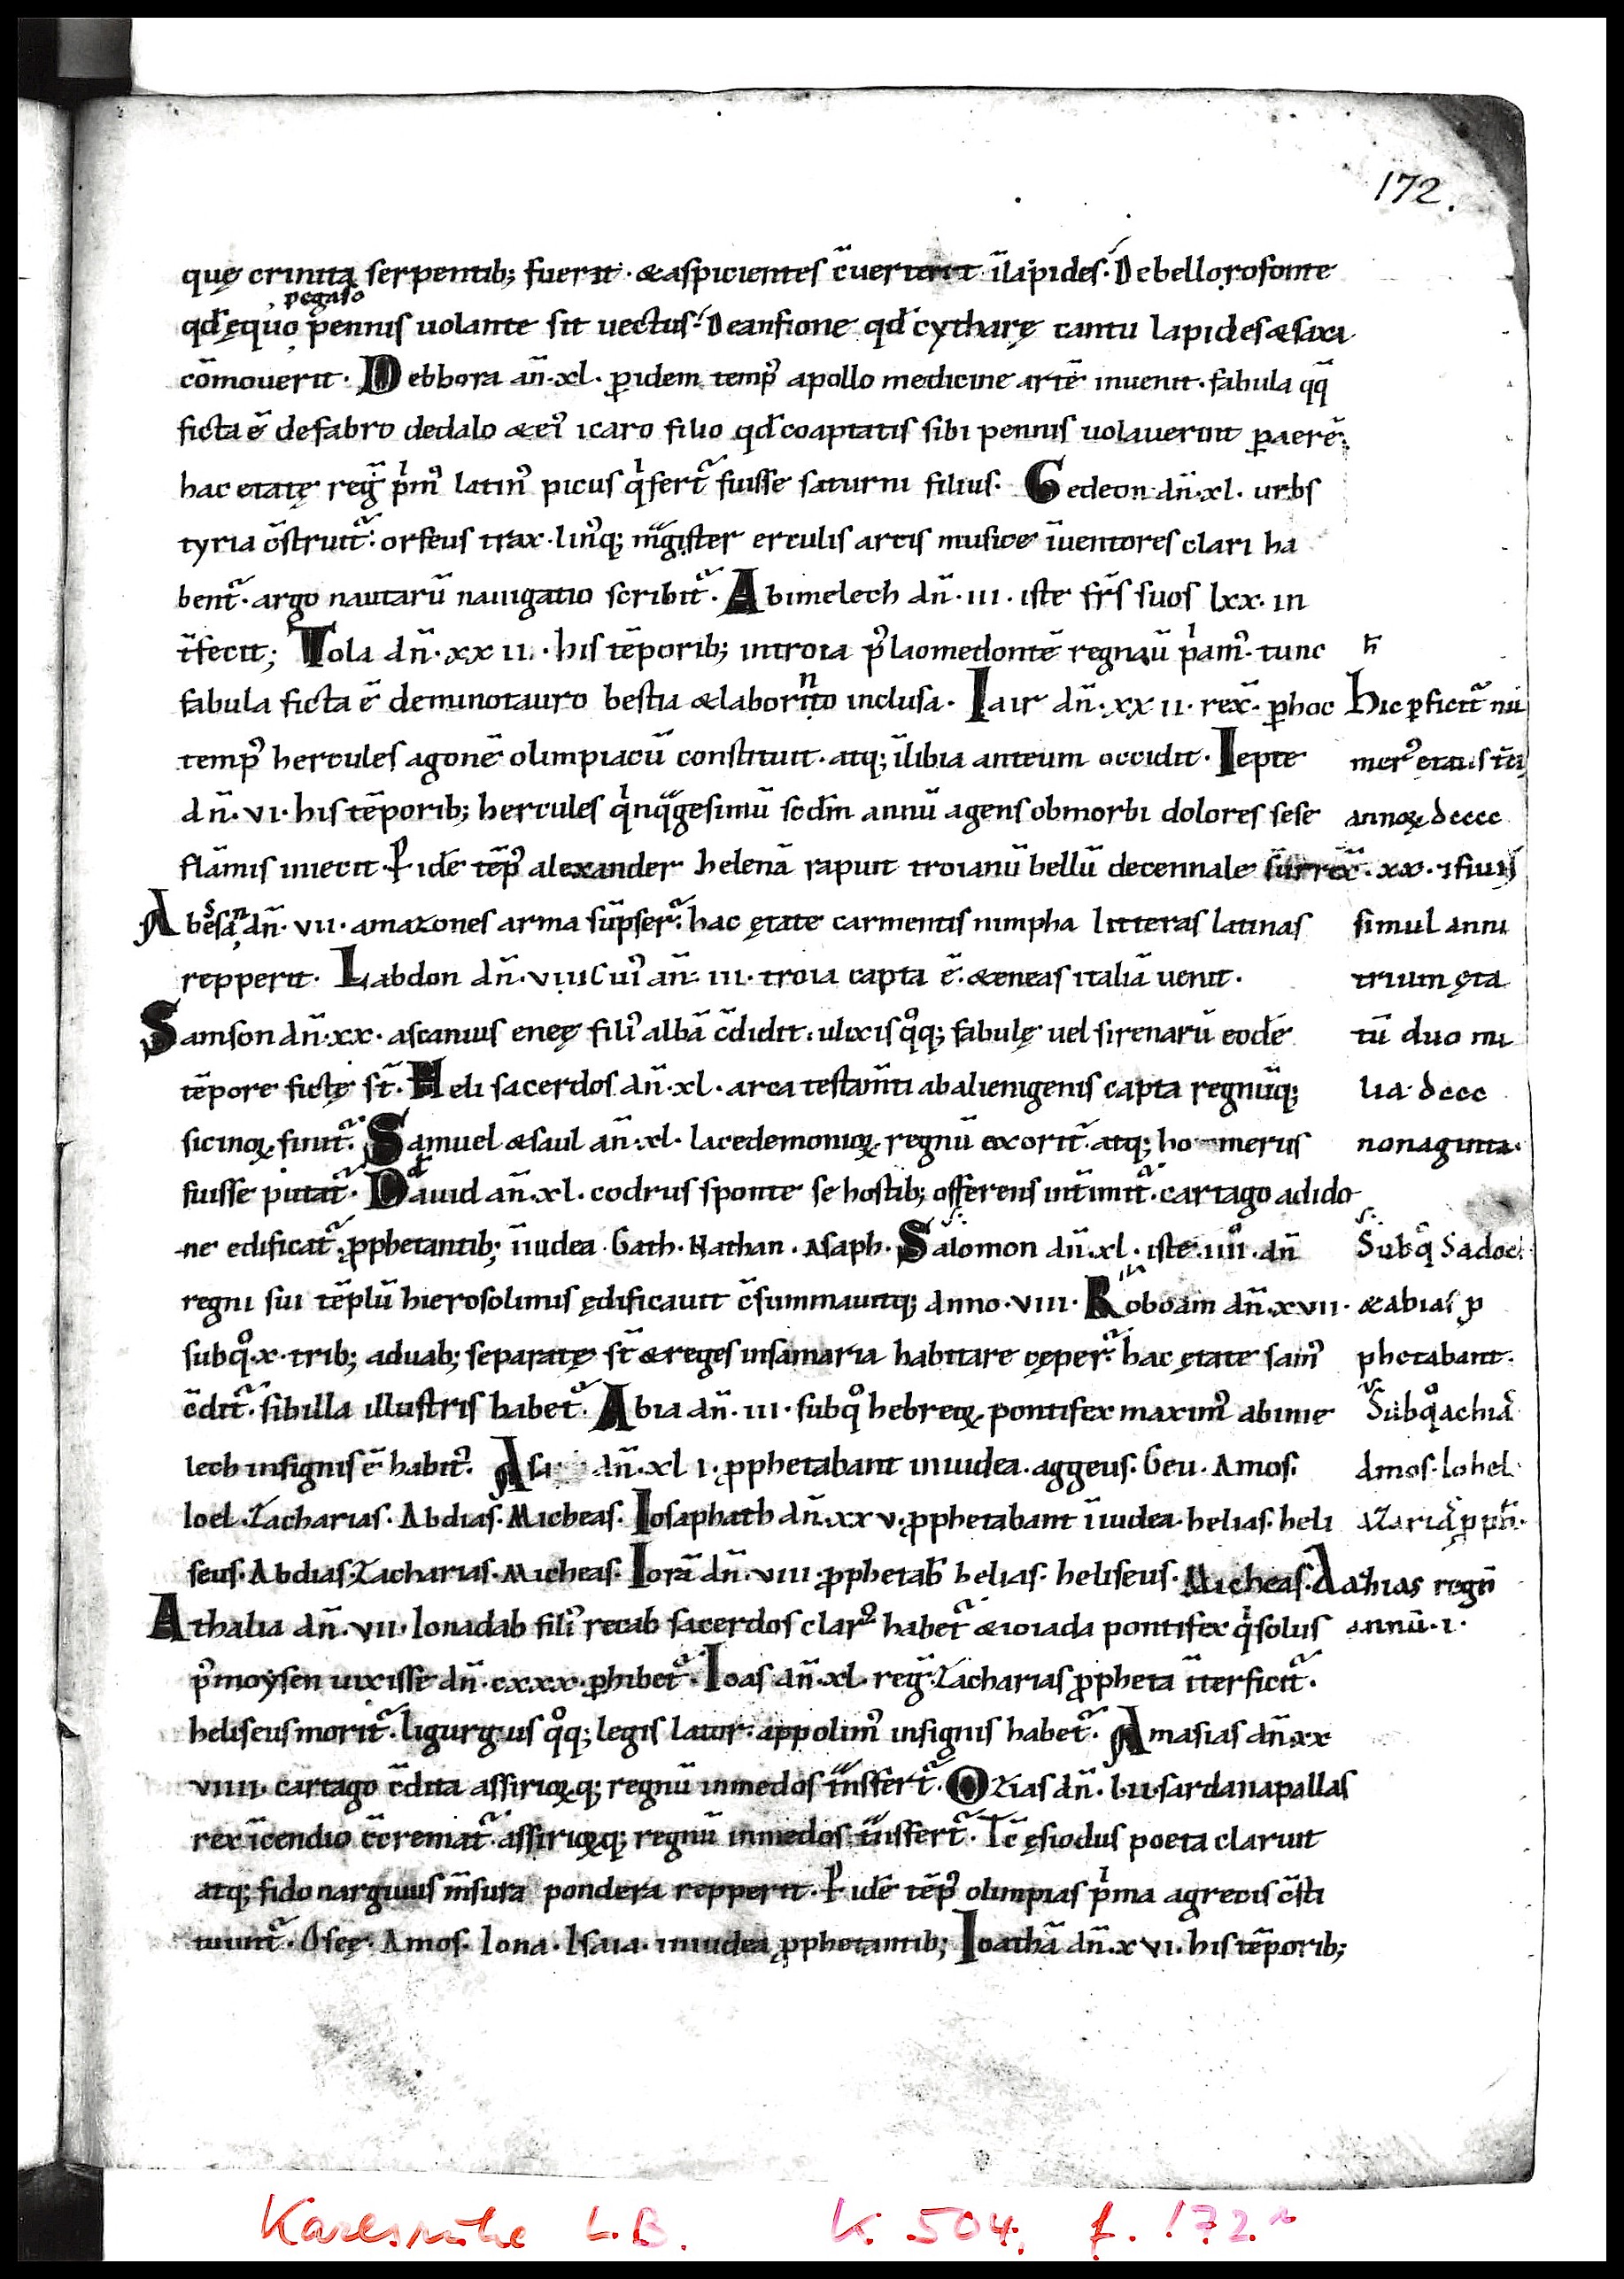 172.
quę crinita serpentib; fuerit · & aspicientes c̄uerterit īlapides · De bellorofonte
pegaso
qd̄ ęquo pennis uolante sit uectus · De anfione qd̄ cytharę cantu lapides & saxa
cōmouerit · Debbora an̄ · xl · ꝑ idem temp᾿ apollo medicine artē inuenit · fabula qq̄
ficta ē de fabro dedalo & ei᾿ icaro filio qd̄ coaptatis sibi pennis uolauerint ꝑ aerē ·
hac etatę reḡ pⁱm᾿ latin᾿ picus qⁱ fert᷑ fuisse saturni filius · Gedeon · an̄ · xl · urbs
tyria c̄struit᷑ · orfeus trax · lin᾿q; mgister erculis artis musice īuentores clari ha
bent᷑ · argo nautarū nauigatio scribit᷑ · Abimelech an̄ · iii · iste fr̄s suos lxx · in
t̄fecit; Tola an̄ · xxii · his tēporib; introia p᾿ laomedontē regnauī pⁱam᾿ · tunc
ħ
fabula ficta ē de minotauro bestia & laborinto inclusa · Iair an̄ · xxii · rex̄ · ꝑ hoc
hic ꝑficit᷑ nu
temp᾿ hercules agonē olimpiacū constituit · atq; īlibia anteum occidit · Iepte
mer᾿ etatis t̄ci
an̄ · vi · his tēporib; hercules qⁱnqgesimū scd̄m annū agens ob morbi dolores sese
annoꝝ dcccc
flāmis iniecit · P idē tēp᾿ alexander helenā rapuit troianū bellū decennale surrex̄ ·
xx · i fiuɴ̄
Abesan an̄ · vii · amazones arma sūpser᷑ · hac ętate carmentis nimpha litteras latinas
simul anni
repperit · Labdon an̄ · viii cui᾿ an̄ · iii · troia capta ē · & eneas italiā uenit ·
trium ęta
Samson an̄ · xx · ascanius enęę fili᾿ albā c̄didit · ulixis qͦq; fabulę uel sirenarū eodē
tū duo mi
tēpore fictę st̄ · Heli sacerdos an̄ · xl · arca testam̄ti ab alienigenis capta regnūq;
lia · dccc
sicinoꝝ finit᷑ · Samuel & saul an̄ · xl · lacedemonioꝝ regnū exorit᷑ · atq; ho merus
nonaginta ·
fuisse putat᷑ · Dauid an̄ · xl · codrus sponte se hostib; offerens int̄imit᷑ · cartago a dido
ne edificat᷑ · ꝓphetantib; īiudea · Gath · Nathan · Asaph · Salomon an̄ · xl · iste · iiii · an̄
Sub qͦ Sadoc
regni sui tēplū hierosolimis ędificauit c̄summauitq; anno · viii · Roboam an̄ · xvii ·
& abias ꝓ
sub qͦ · x · trib; a duab; separatę st̄ & reges in samaria habitare cęper᷑ · hac ętate sam᾿
phetabant ·
c̄dit᷑ · sibilla illustris habet᷑ · Abia an̄ · iii · sub qͦ hebreoꝝ pontifex maxim᾿ abime
Sub qͦ achia
lech insignis ē habit᾿ · Asa an̄ · xli · ꝓphetabant iniudea · aggeus · Geu · Amos ·
Amos · Iohel ·
Ioel · Zacharias · Abdias · Micheas · Iosaphath an̄ · xxv · ꝓphetabant īiudea · helias · heli
aZaria ꝓph̄ ·
seus · Abdias · Zacharias · Micheas · Iorā an̄ · viii · ꝓphetab̄ helias · heliseus · Micheas · Aahias regn̄
Athalia an̄ · vii · Ionadab fili᾿ recab sacerdos clar᾿ habet᷑ & ioiada pontifex qⁱ solus
annū · i ·
p᾿ moysen uixisse an̄ · cxxx · ꝓhibet᷑ · Ioas an̄ · xl · reḡ · Zacharias ꝓpheta īterficit᷑ ·
heliseus morit᷑ · ligurgus qͦq; legis lator · appolim᾿ insignis habet᷑ · Amasias an̄ · xx
viiii · cartago c̄dita assirioꝝq; regnū in medos tnsfert᷑ · OZias an̄ · lii · sardanapallas
rex īcendio c̄cremat᷑ · assirioꝝq; regnū in medos tnsfert᷑ · Tc̄ ęsiodus poeta claruit
atq; fidon arguius m̄sura pondera repperit · P idē tēp᾿ olimpias pⁱma a grecis c̄sti
tuunt᷑ · Oseę · Amos · Iona · Isaia · iniudea ꝓphetantib; Ioathā an̄ · xvi · his tēporib;
Karlsruhe L.B. K. 504, f. 172.r